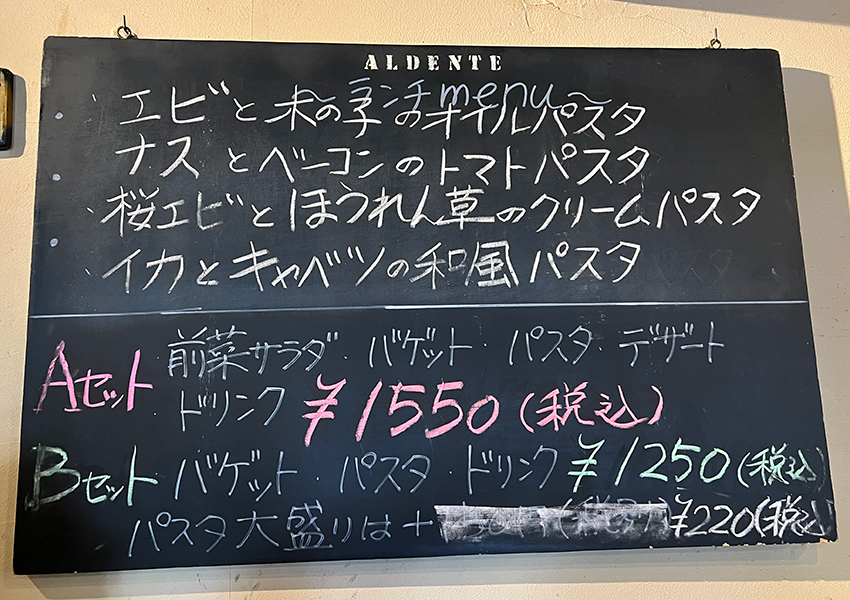 ALDENTE
〜ランチmenu〜
・エビと木の子のオイルパスタ
・ナスとベーコンのトマトパスタ
・桜エビとほうれん草のクリームパスタ
・イカとキャベツの和風パスタ
Aセット 前菜サラダ・バゲット・パスタ・デザート
ドリンク ¥1550(税込)
Bセット バゲット・パスタ・ドリンク ¥1250(税込)
パスタ大盛りは+ ¥220(税込)